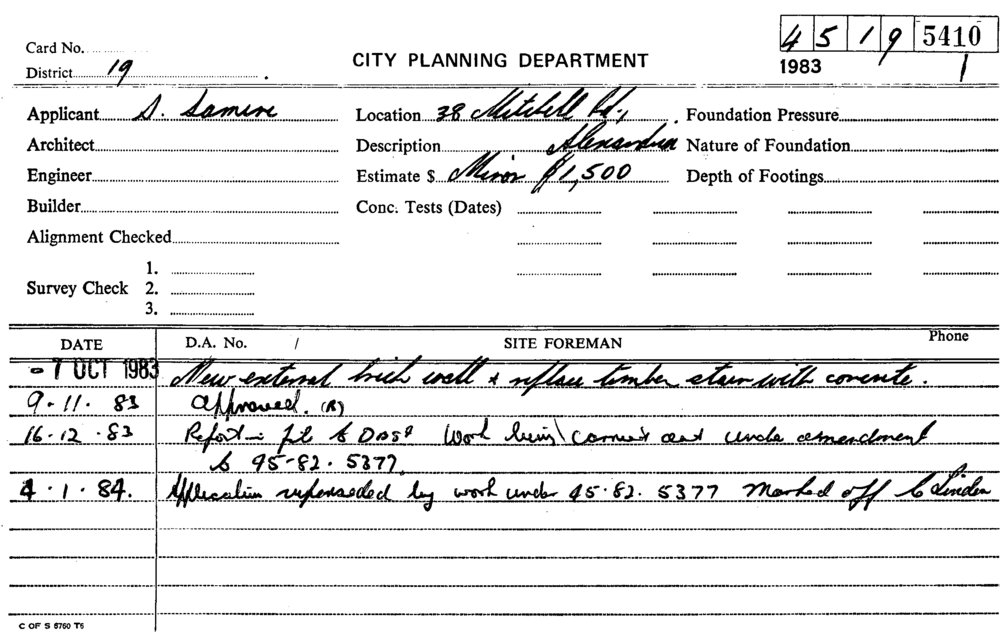 45 19 5410
Card No.
CITY PLANNING DEPARTMENT
1983
1
District 19
Applicant S. Samine Location 38 Mitchell Rd, Foundation Pressure
Architect Description Alexandria Nature of Foundation
Engineer Estimate $ Minor $1,500 Depth of Footings
Builder Conc. Tests (Dates)
Alignment Checked
1.
Survey Check 2.
3.
DATE D.A. No. / SITE FOREMAN Phone
-7 OCT 1983 New external brick wall & replace timber stair with concrete.
9.11.83 Approved. (R)
16.12.83 Report - to Work being carried out under amendment
to 45-82.5377.
4.1.84. Application superseded by work under 45.82.5377 Marked off
C OF S 5760 T6